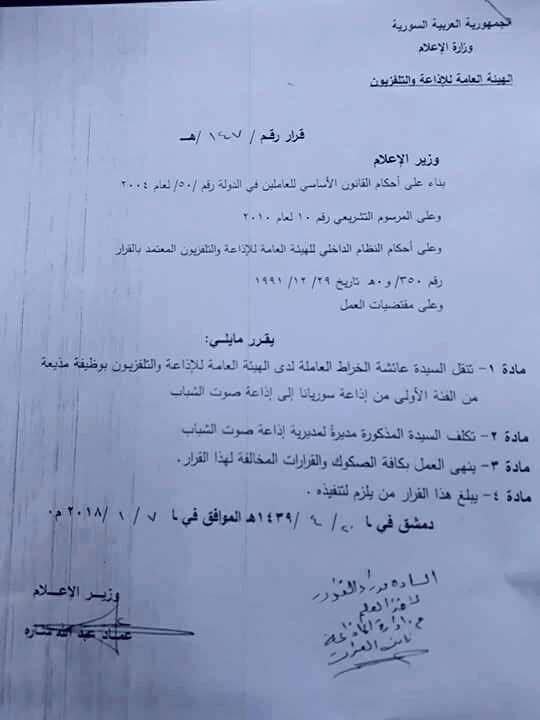 الجمهورية العربية السورية
وزارة الإعلام
الهيئة العامة للإذاعة والتلفزيون
قرار رقم / ١٤٧ /هـ
وزير الإعلام
بناء على أحكام القانون الأساسي للعاملين في الدولة رقم /٥٠/ لعام ٢٠٠٤
وعلى المرسوم التشريعي رقم ١٠ لعام ٢٠١٠
وعلى أحكام النظام الداخلي للهيئة العامة للإذاعة والتلفزيون المعتمد بالقرار
رقم ٣٥٠/ و٠هـ تاريخ ٢٩/ ١٢/ ١٩٩١
وعلى مقتضيات العمل
يقرر مايلي:
مادة ١- تنقل السيدة عائشة الخراط العاملة لدى الهيئة العامة للإذاعة والتلفزيون بوظيفة مذيعة
من الفئة الأولى من إذاعة سوريانا إلى إذاعة صوت الشباب
مادة ٢- تكلف السيدة المذكورة مديرةً لمديرية إذاعة صوت الشباب
مادة ٣- ينهى العمل بكافة الصكوك والقرارات المخالفة لهذا القرار.
مادة ٤- يبلغ هذا القرار من يلزم لتنفيذه .
دمشق في ٢٠/ ٤ /١٤٣٩هـ الموافق في ٧ / ١ /٢٠١٨ م٠
وزير الإعلام
عماد عبد الله سارة
السادة